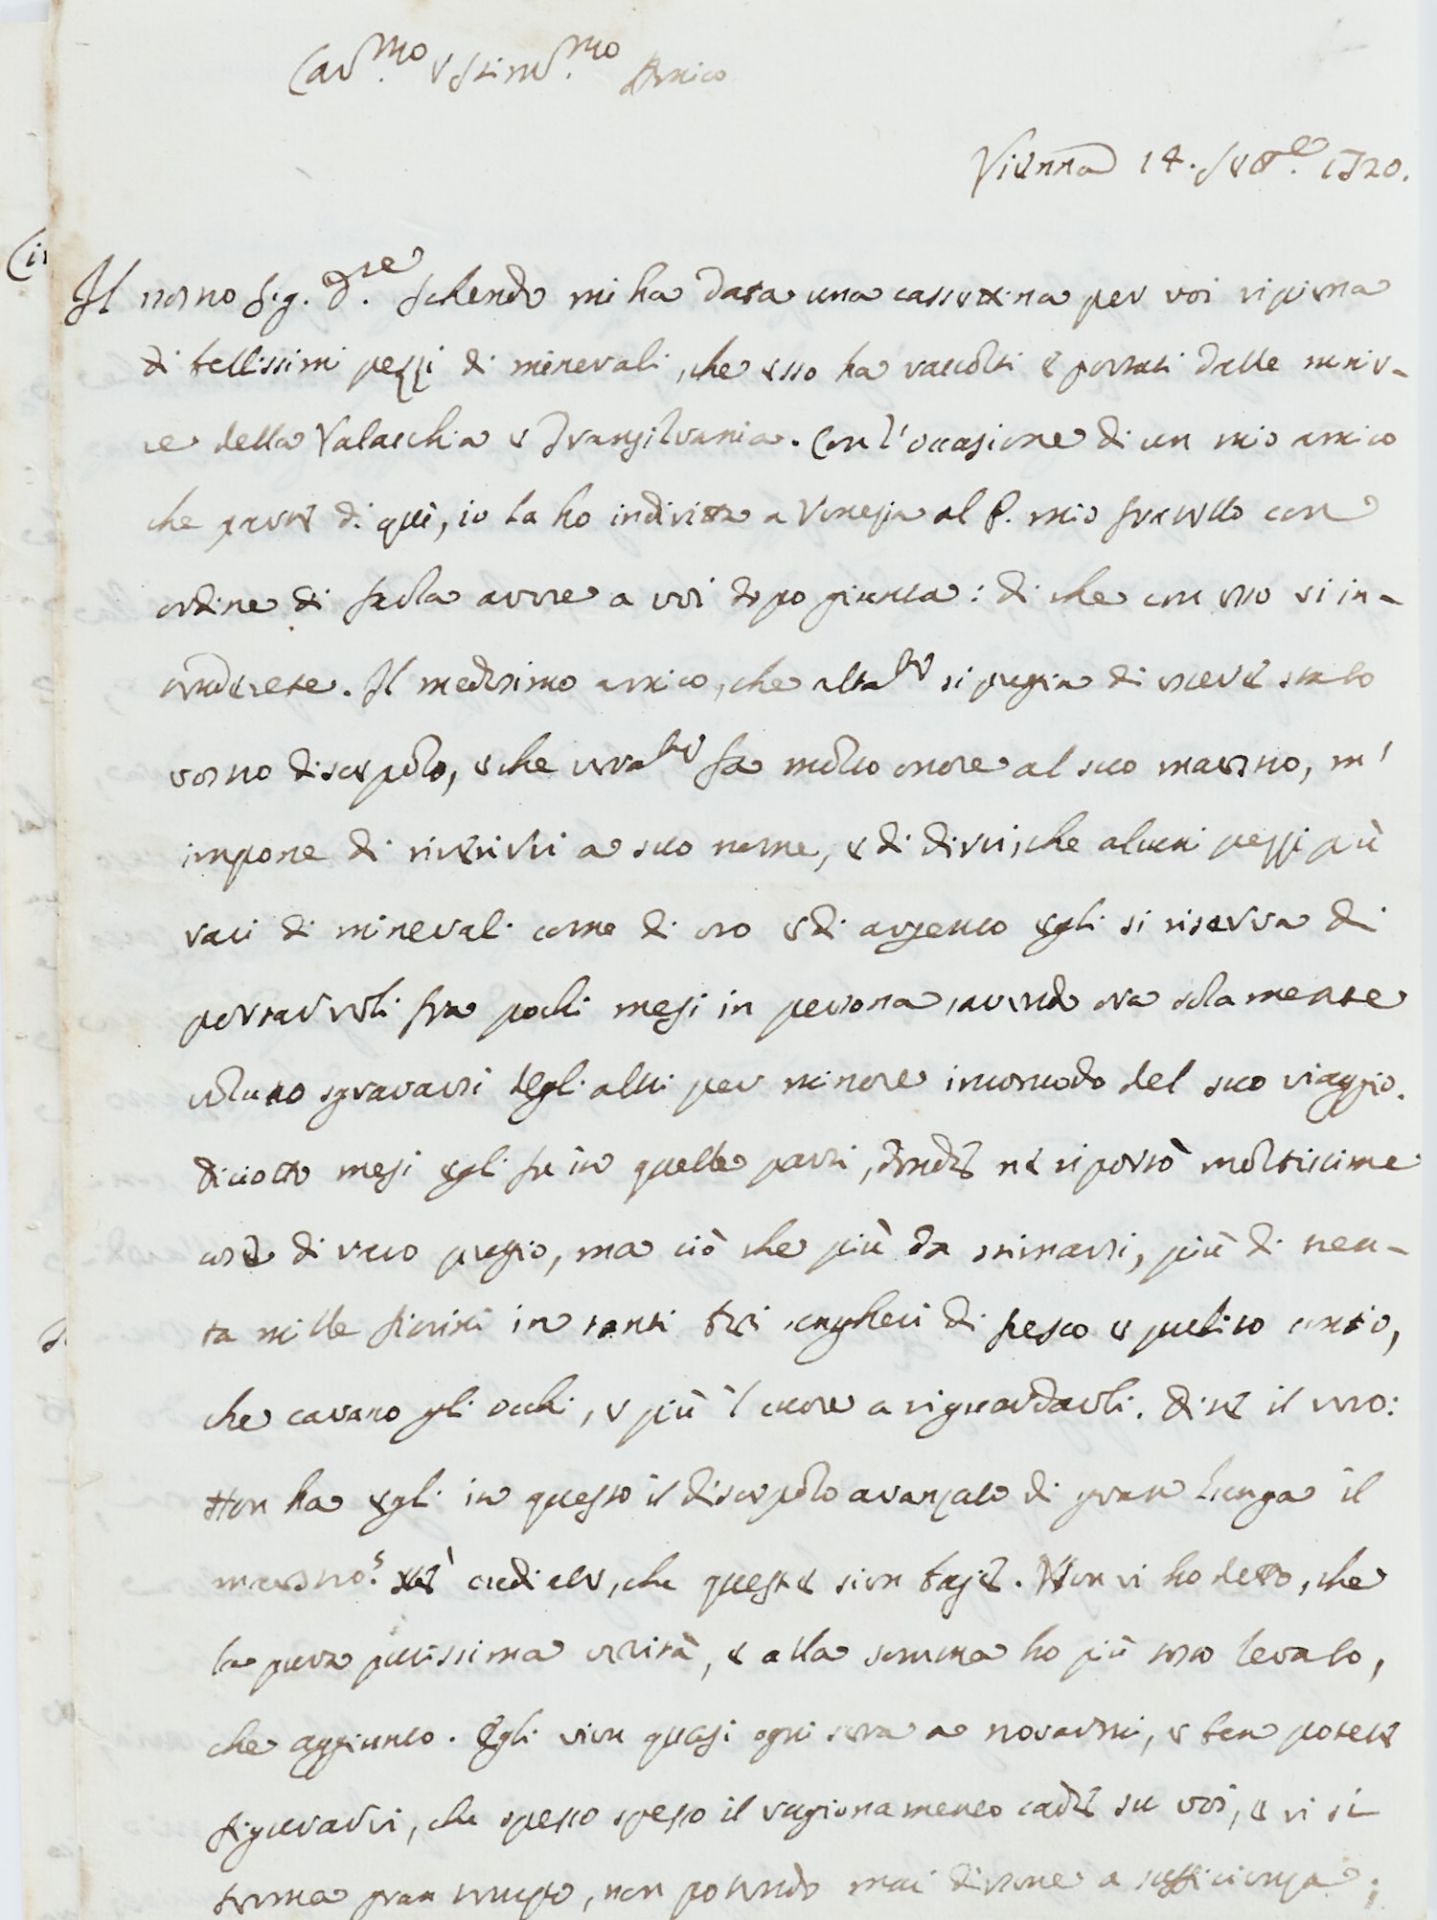 Car.mo e Stim.mo Amico
Vienna 14. 7bre. 1720.
Il vostro Sig. D.re Schendo mi ha data una cassettina per voi ripiena
di bellissimi pezzi di minerali, che esso ha raccolti e portati dalle minie-
re della Valacchia e Transilvania. Con l'occasione di un mio amico
che partì di quì, io la ho indiritta a Venezia al P. mio fratello con
ordine di farla avere a voi dopo giunta: di che con esso vi in-
tenderete. Il medesimo amico, che altre si pregia di essere stato
vostro discepolo, e che fa molto onore al suo maestro, m'
impone di riverirvi a suo nome, e di dirvi, che alcuni pezzi più
rari di minerali come di oro e di argento egli si riserva di
portarveli fra pochi mesi in persona, avendo ora solamente
voluto sgravarsi degli altri per minore incomodo del suo viaggio.
Diciotto mesi egli fu in quelle parti, donde ne riportò moltissime
cose di raro pregio, ma ciò che più da stimarsi, più di tren-
ta mille fiorini in tanti begli ungheri di fresco e pulito conio,
che cavano gli occhi, e più 'l cuore a riguardarli. Dite il vero:
Non ha egli in questo il discepolo avanzato di gran lunga il
maestro? Nè crediate, che queste sien bajè. Non vi ho detto, che
la pura purissima verità, e alla somma ho più tosto levato,
che aggiunto. Egli vien quasi ogni sera a trovarmi, e ben potete
figurarvi, che spesso spesso il ragionamento cade su voi, e vi si
ferma gran tempo, non potendo mai dirsene a sufficienza;